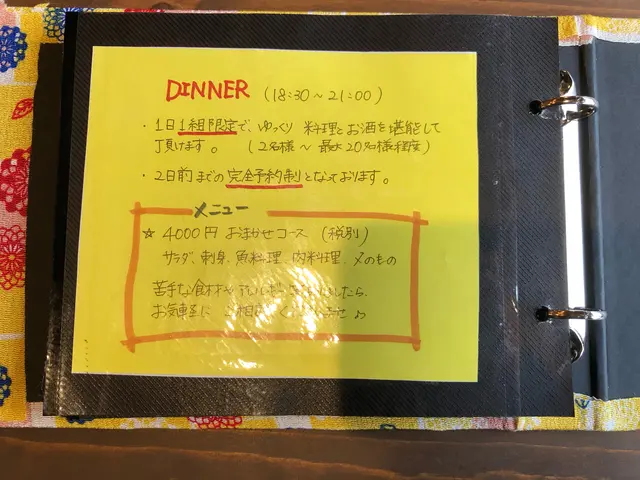 DINNER (18:30～21:00)
・1日1組限定で、ゆっくり 料理とお酒を堪能して
丁頂けます。 (2名様～最大20名様程度)
・2日前までの完全予約制となっております。
メニュー
☆ 4000円 お任せコース (税別)
サラダ、刺身、魚料理、肉料理、〆のもの
苦手な食材や
お気軽に ご相談